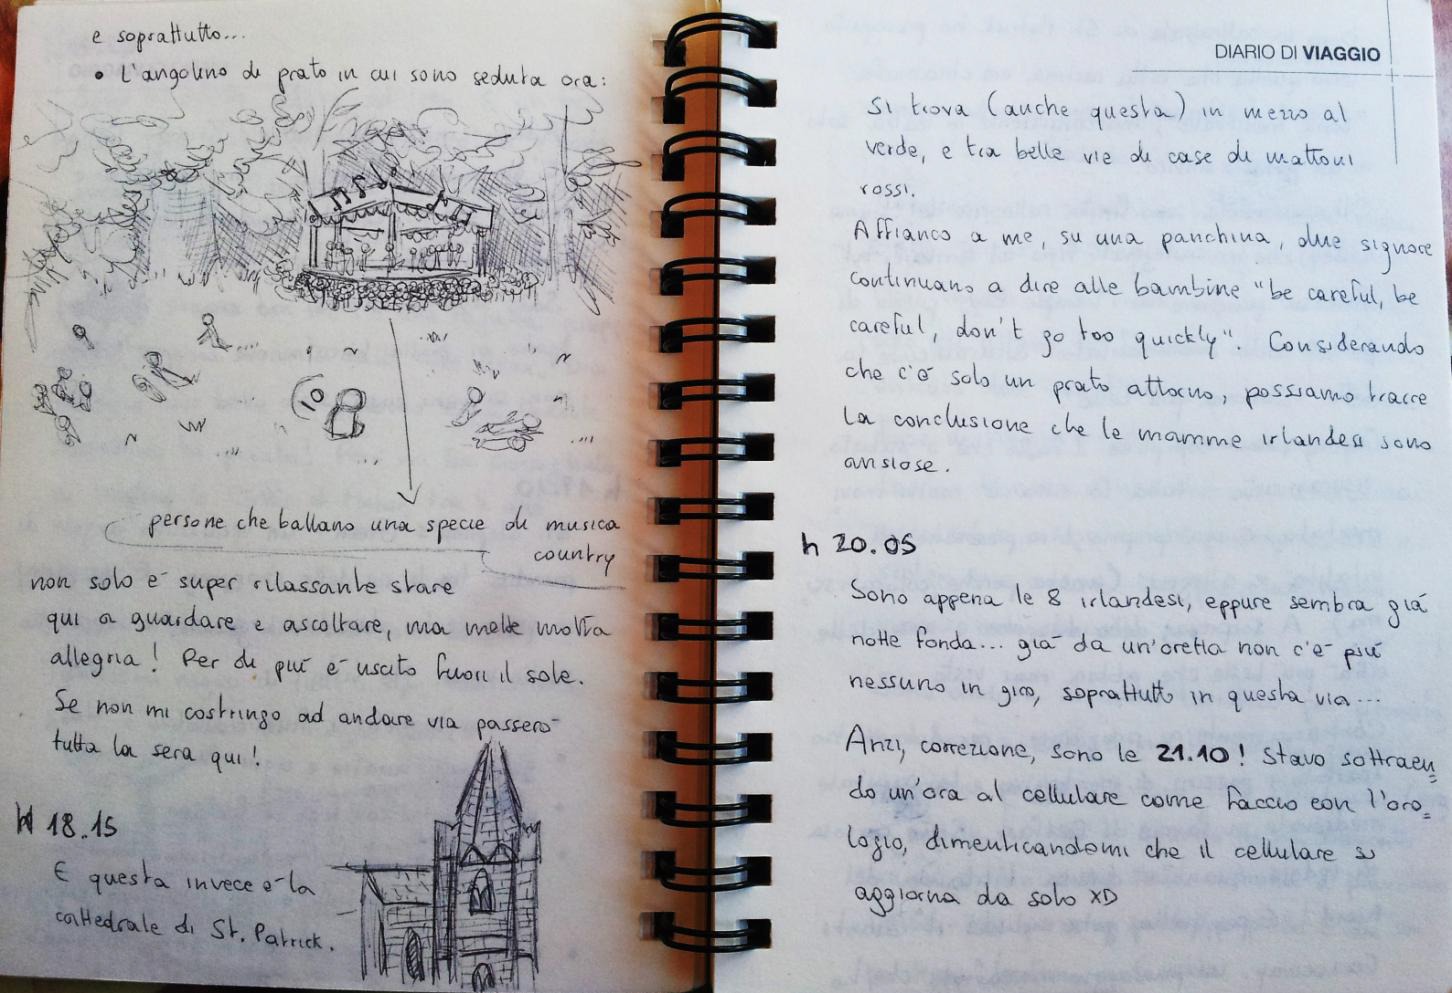 e soprattutto...
• L'angolino di prato in cui sono seduta ora:
IO
persone che ballano una specie di musica
country
non solo è super rilassante stare
qui a guardare e ascoltare, ma mette molta
allegria! Per di più è uscito fuori il sole.
Se non mi costringo ad andare via passerò
tutta la sera qui!
H 18.15
E questa invece è la
cattedrale di St. Patrick.
DIARIO DI VIAGGIO
Si trova (anche questa) in mezzo al
verde, e tra belle vie di case di mattoni
rossi.
Affianco a me, su una panchina, due signore
continuano a dire alle bambine "be careful, be
careful, don't go too quickly". Considerando
che c'è solo un prato attorno, possiamo trarre
la conclusione che le mamme irlandesi sono
ansiose.
h 20.05
Sono appena le 8 irlandesi, eppure sembra già
notte fonda... già da un'oretta non c'è più
nessuno in giro, soprattutto in questa via...
Anzi, correzione, sono le 21.10! Stavo sottraen=
do un'ora al cellulare come faccio con l'oro=
logio, dimenticandomi che il cellulare si
aggiorna da solo XD